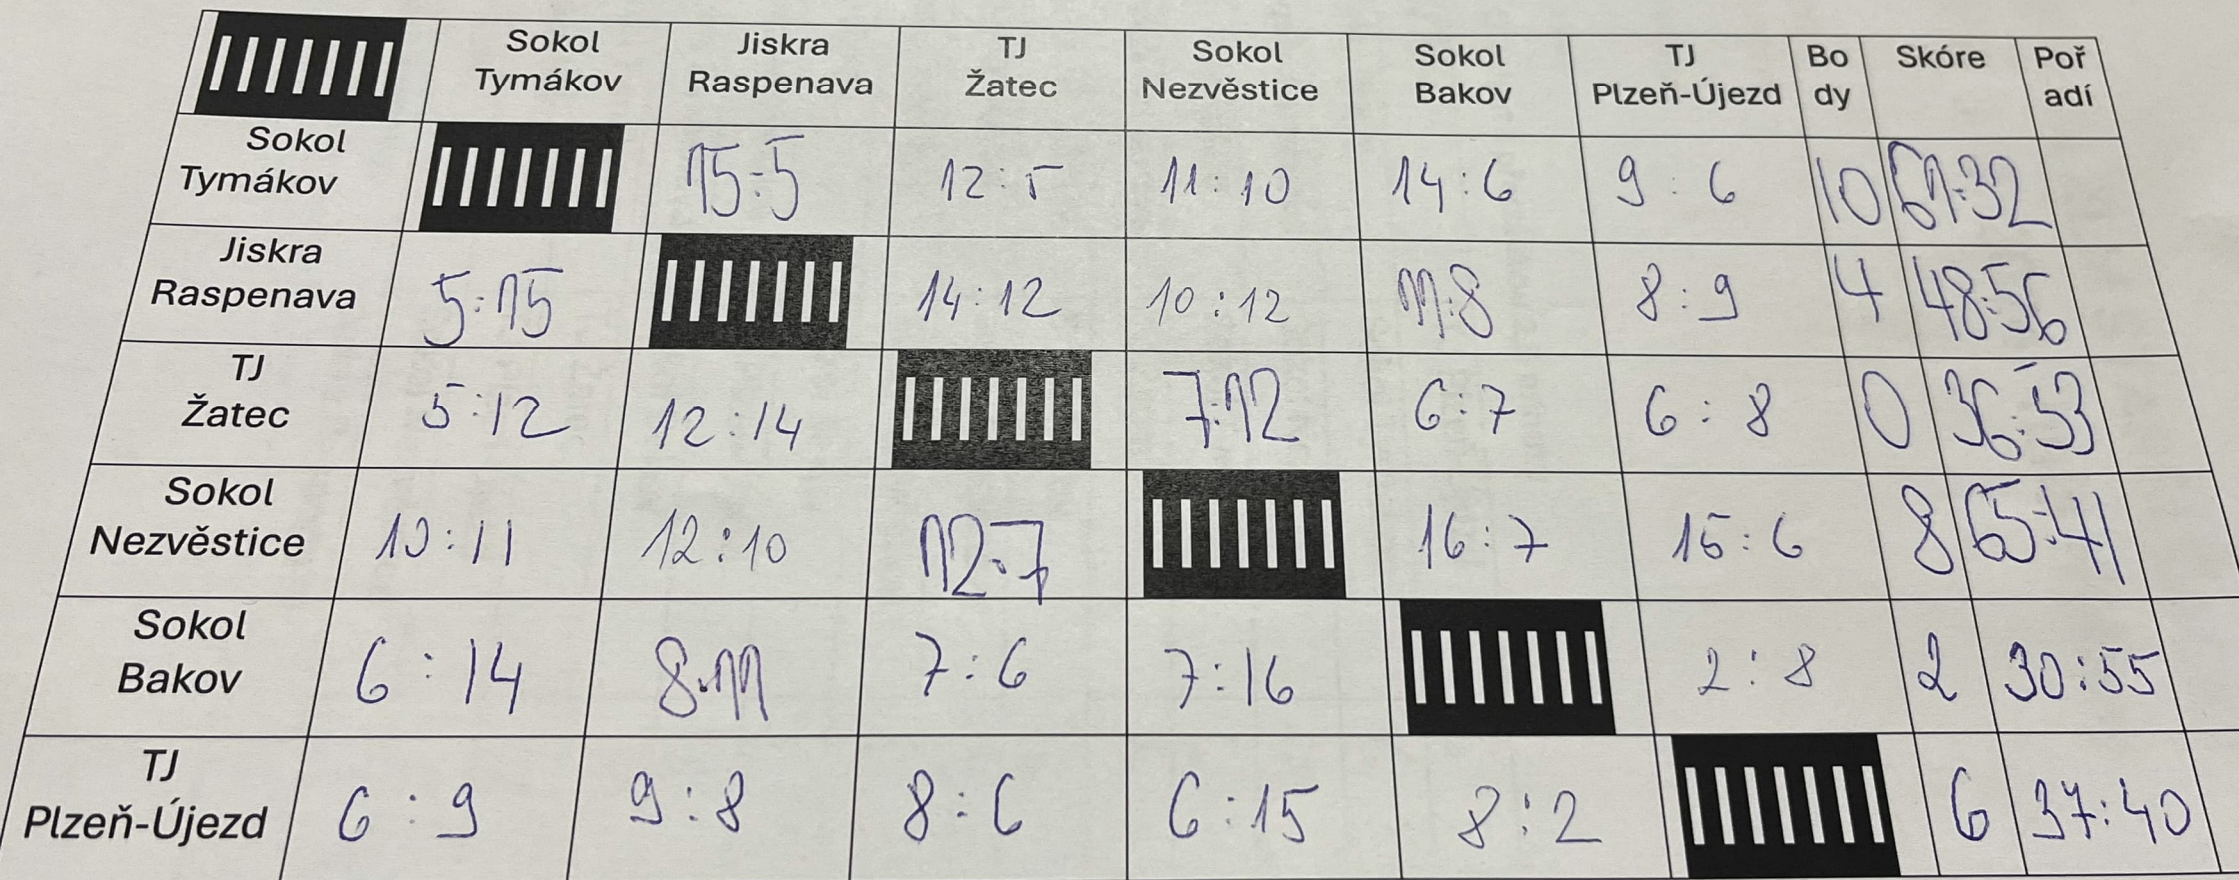 Sokol Tymákov Jiskra Raspenava TJ Žatec Sokol Nezvěstice Sokol Bakov TJ Plzeň-Újezd Bo dy Skóre Poř adí
Sokol Tymákov 15:5 12:5 11:10 14:6 9:6 10 61:32
Jiskra Raspenava 5:15 14:12 10:12 11:8 8:9 4 48:56
TJ Žatec 5:12 12:14 7:12 6:7 6:8 0 36:53
Sokol Nezvěstice 10:11 12:10 12:7 16:7 15:6 8 65:41
Sokol Bakov 6:14 8:11 7:6 7:16 2:8 2 30:55
TJ Plzeň-Újezd 6:9 9:8 8:6 6:15 8:2 6 37:40